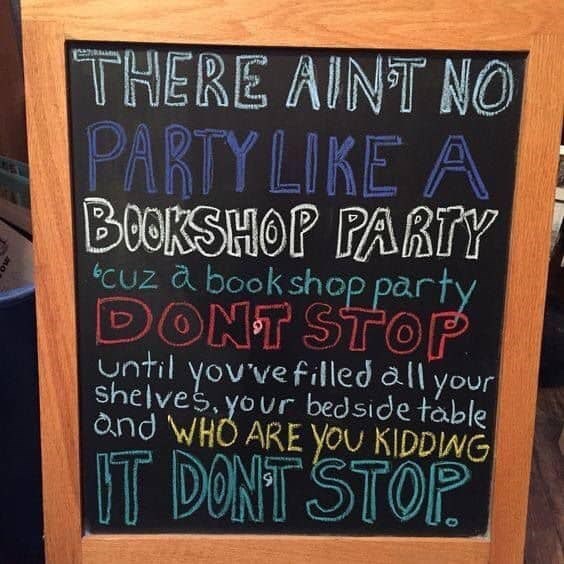 THERE AIN'T NO
PARTY LIKE A
BOOKSHOP PARTY
'cuz a bookshop party
DON'T STOP
until you've filled all your
shelves, your bedside table
and WHO ARE YOU KIDDING
IT DON'T STOP.